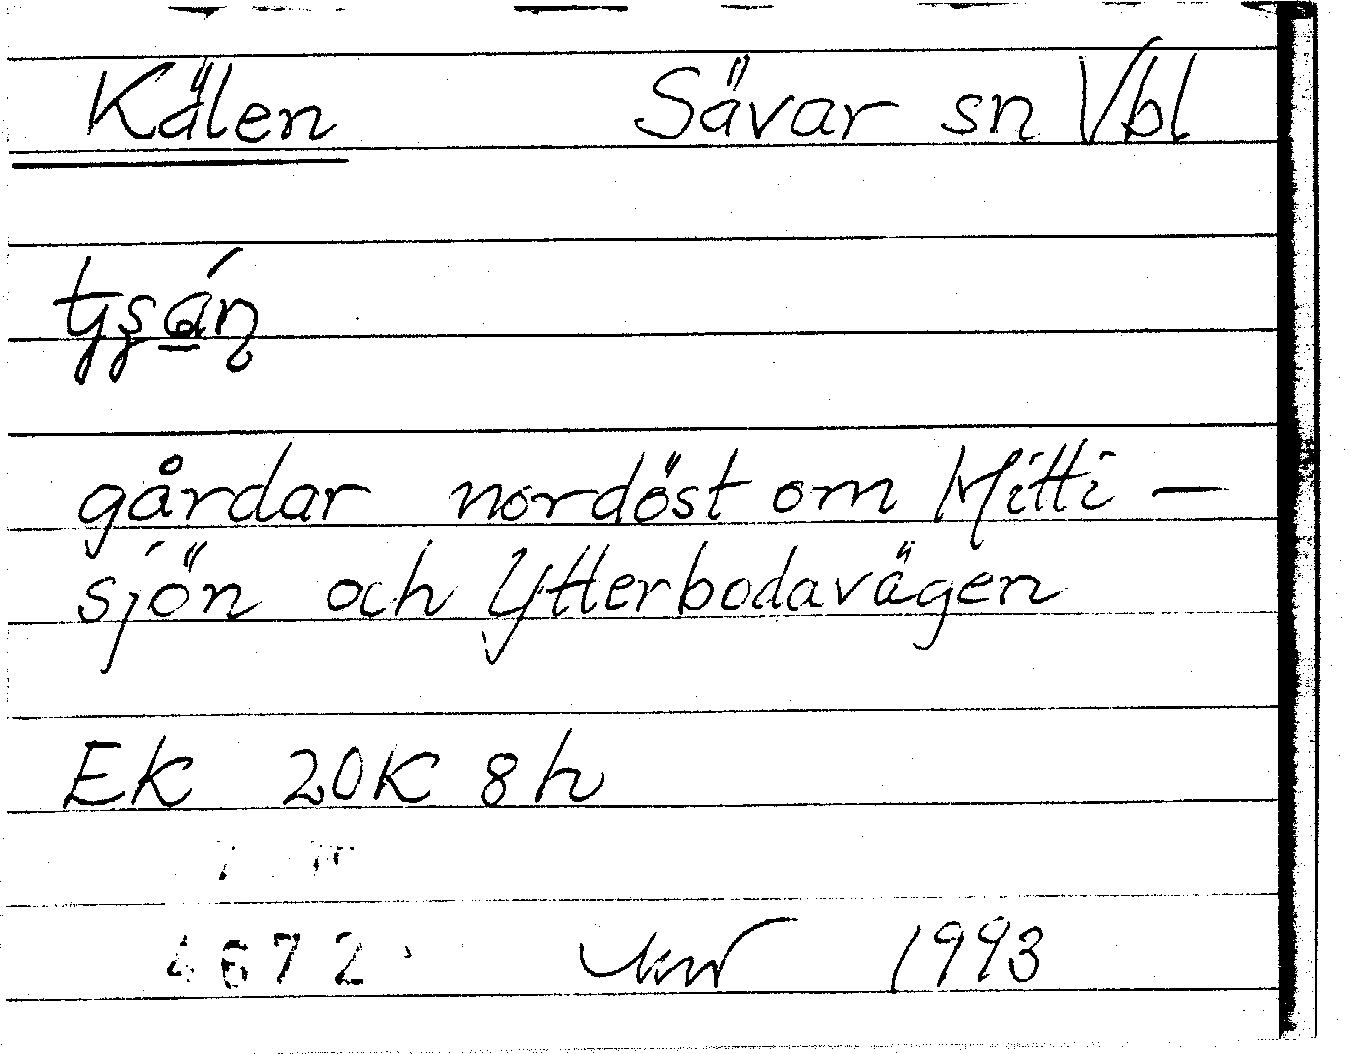 Kälen Sävar sn Vbl
gårdar nordöst om Mitti-
sjön och Ytterbodavägen
Ek 20K 8h
4672
1993